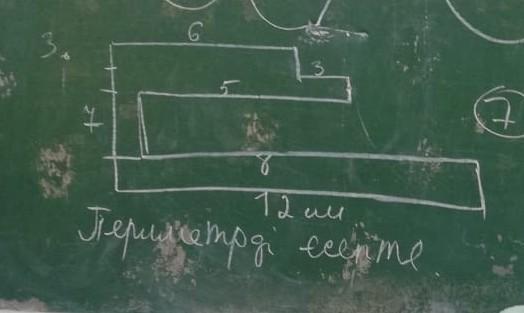 3.
6
3
5
7
8
12 см
Периметрді есепте
7